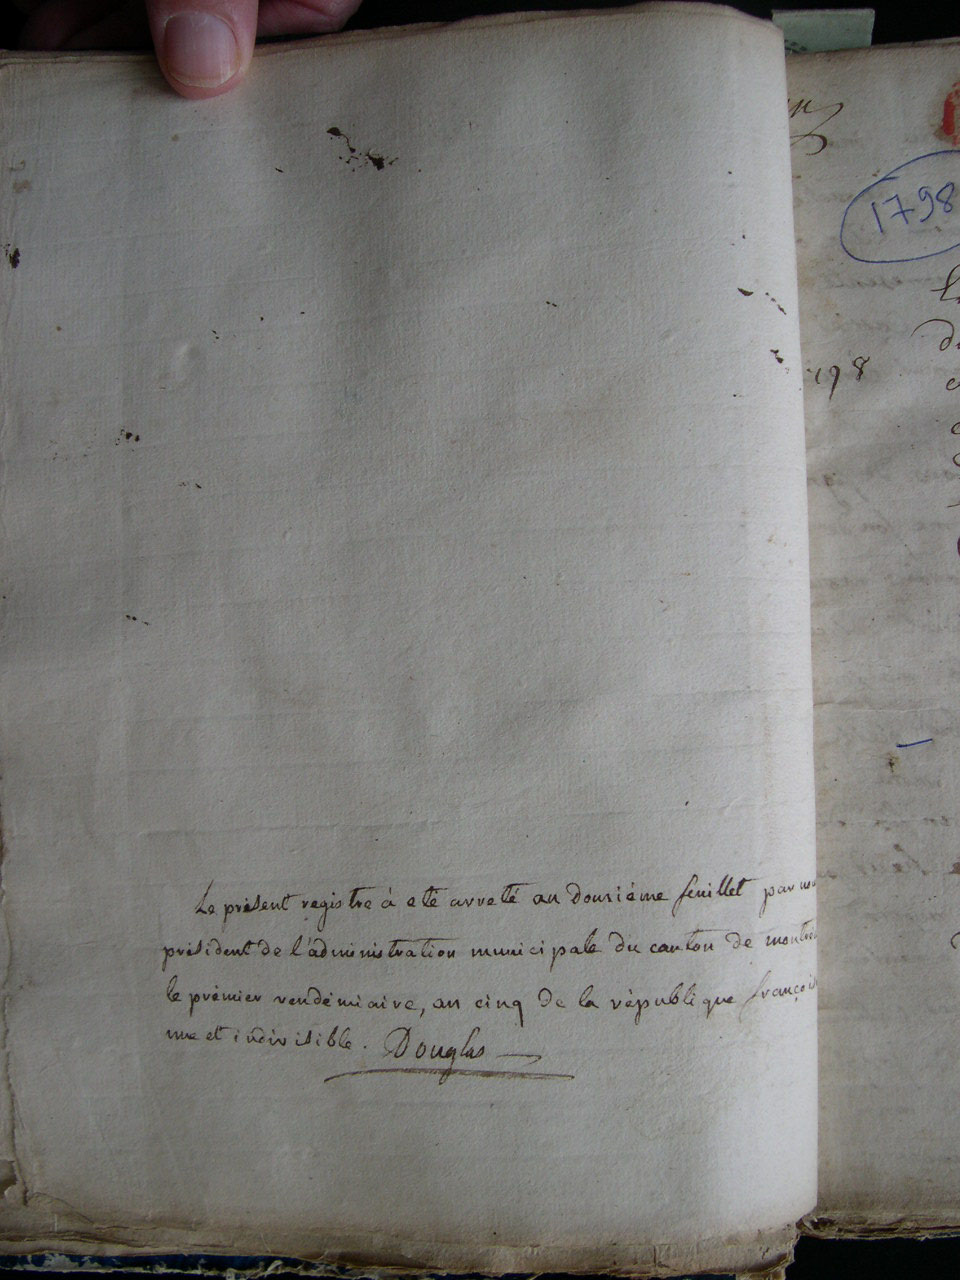 Le présent registre à eté arreté au douziéme feuillet par nous
président de l'administration municipale du canton de
le prémier vendémiaire, an cinq de la république françoise
une et indivisible. Douglas
1798
198